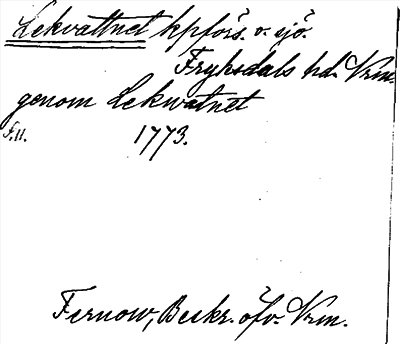 Lekvattnet kpförs. o. sjö.
Fryksdals hd. Vrm.
genom Lekwatnet
s.11. 1773.
Fernow, Beskr. öfv. Vrm.